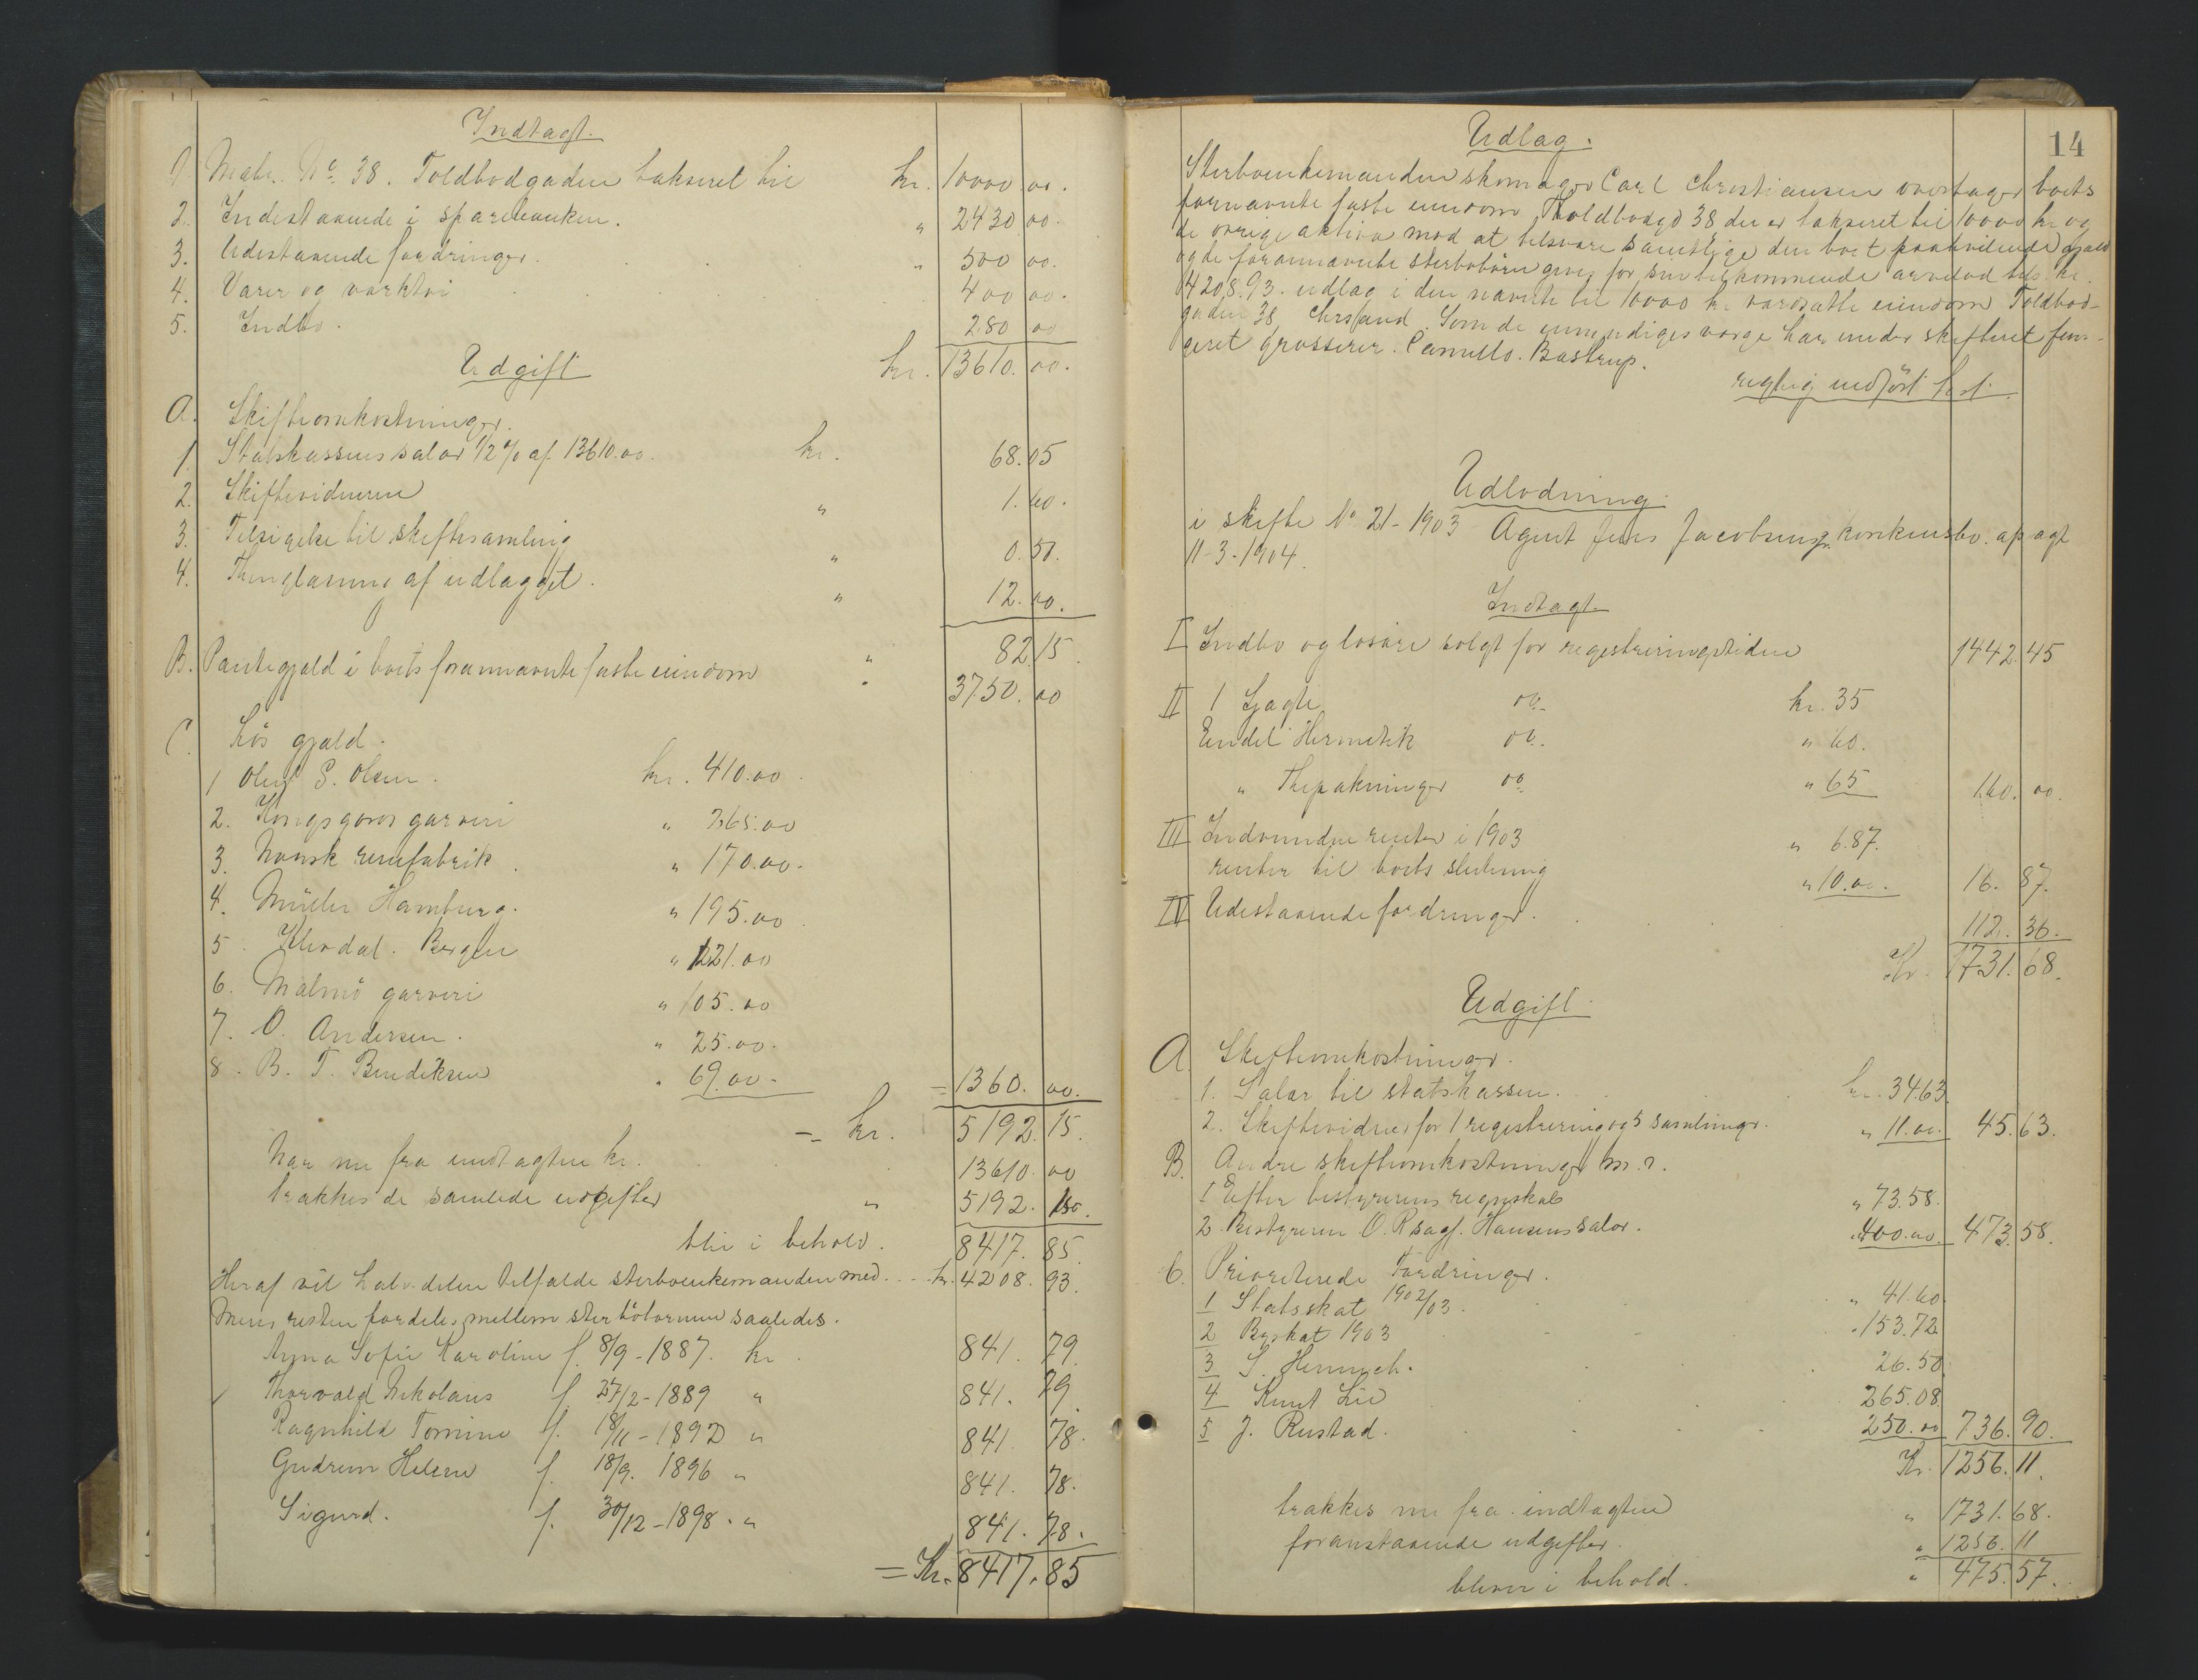 Indtægt.
1. Matr. No 38. Toldbodgaden takseret til kr. 10000.00.
2. Indestaaende i sparebanken. " 2430.00.
3. Udestaaende fordringer. " 500 00.
4. Varer og værktøi 400 00.
5. Indbo. 280 00
Udgift kr. 13610.00.
A. Skifteomkostninger.
1. Statskassens salær 1/2 % af 13610.00. kr. 68.05
2. Skiftevidnerne " 1.60.
3. Tilsigelse til skiftesamling " 0.50.
4. Thinglæsning af udlægget. " 12.00.
82 15.
B. Pantegjæld i boets forannævnte faste eiendom " 3750.00
C. Løs gjæld.
1 Oluf S. Olsen. kr. 410.00.
2. Kongsgaard garveri " 265.00
3. Norsk remfabrik. " 170.00.
4. Müller Hamburg. " 195.00
5. Klivdal. Bergen " 121.00
6. Malmö garveri " 105.00
7. O. Andersen. " 25.00.
8. B. T. Bendiksen " 69.00. = 1360.00.
= kr. 5192.15.
Naar nu fra indtægten kr. 13610.00
trækkes de samlede udgifter " 5192.15.
blir i behold. 8417.85
Heraf vil halvdelen tilfalde sterboenkemanden med kr. 4208.93.
Mens resten fordeles mellem sterbobørnene saaledes.
Anna Sofie Karoline f. 8/9-1887. kr. 841.79.
Thorvald Nikolaus f. 27/2-1889 " 841.79.
Ragnhild Tomine f. 18/11-1892 " 841.78.
Gudrun Helene f. 18/9. 1896 " 841.78.
Sigurd. f. 30/12-1898. " 841.78.
= Kr. 8417.85
14
Udlæg.
Sterboenkemanden skomager Carl Christiansen overtager boets
fornævnte faste eiendom Tholdbodgd 38 der er takseret til 10000 kr og
de øvrige aktiva mod at tilsvare samtlige den boet paahvilende gjæld
og de forannævnte sterbobørn gives for sin tilkommende arvelod tils. kr.
4208.93. udlæg i den nævnte til 10000 kr værdsatte eiendom Toldbod-
gaden 38 Chrsand. Som de umyndiges værge har under skiftet fun-
geret grosserer. Camillo. Bastrup.
rigtig udført
Udlodning.
i skifte No 21-1903 Agent Jens Jacobsens konkursbo.
11-3-1904.
Indtægt.
I Indbo og løsøre solgt for registreringstiden 1442.45
II 1 Sjægte do. kr. 35
Endel Hermetik do. " 60.
" Thepakninger do " 65 160.00.
III Indvundne renter i 1903 " 6.87.
renter til boets slutning " 10.00. 16.87.
IV Udestaaende fordringer. 112.36.
Kr. 1731.68.
Udgift.
A. Skifteomkostninger.
1. Salær til statskassen. kr. 34.63
2. Skiftevidner for 1 registrering og 5 samlinger. " 11.00. 45.63.
B. Andre skifteomkostninger m. v.
1 Efter bestyrerens regnskab " 73.58.
2. Bestyreren O. R sagf. Hansens salær. " 400.00. 473.58.
C. Prioriterede Fordringer.
1 Statsskat 1902/03. " 41.60
2 Byskat 1903 " 153.72
3 S. 26.50
4 Knut Lie 265.08
5 J. Rustad. 250.00 736.90.
Kr. 1256.11.
trækkes nu fra indtægten " 1731.68.
foranstaaende udgifter. " 1256.11
bliver i behold. " 475.57.